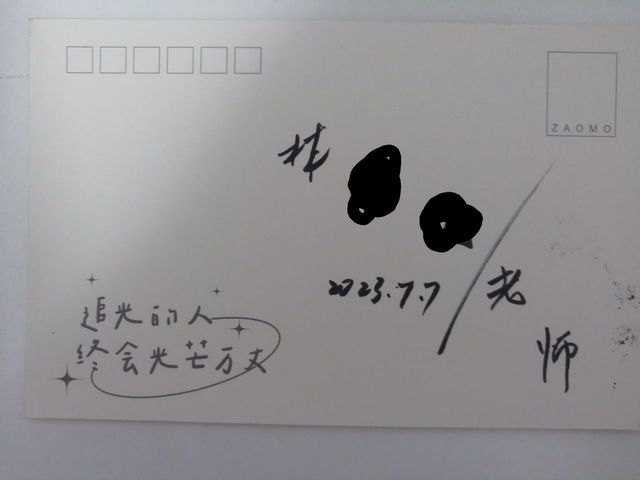 ZAOMO
林
2023.7.7
老
师
追光的人
终会光芒万丈